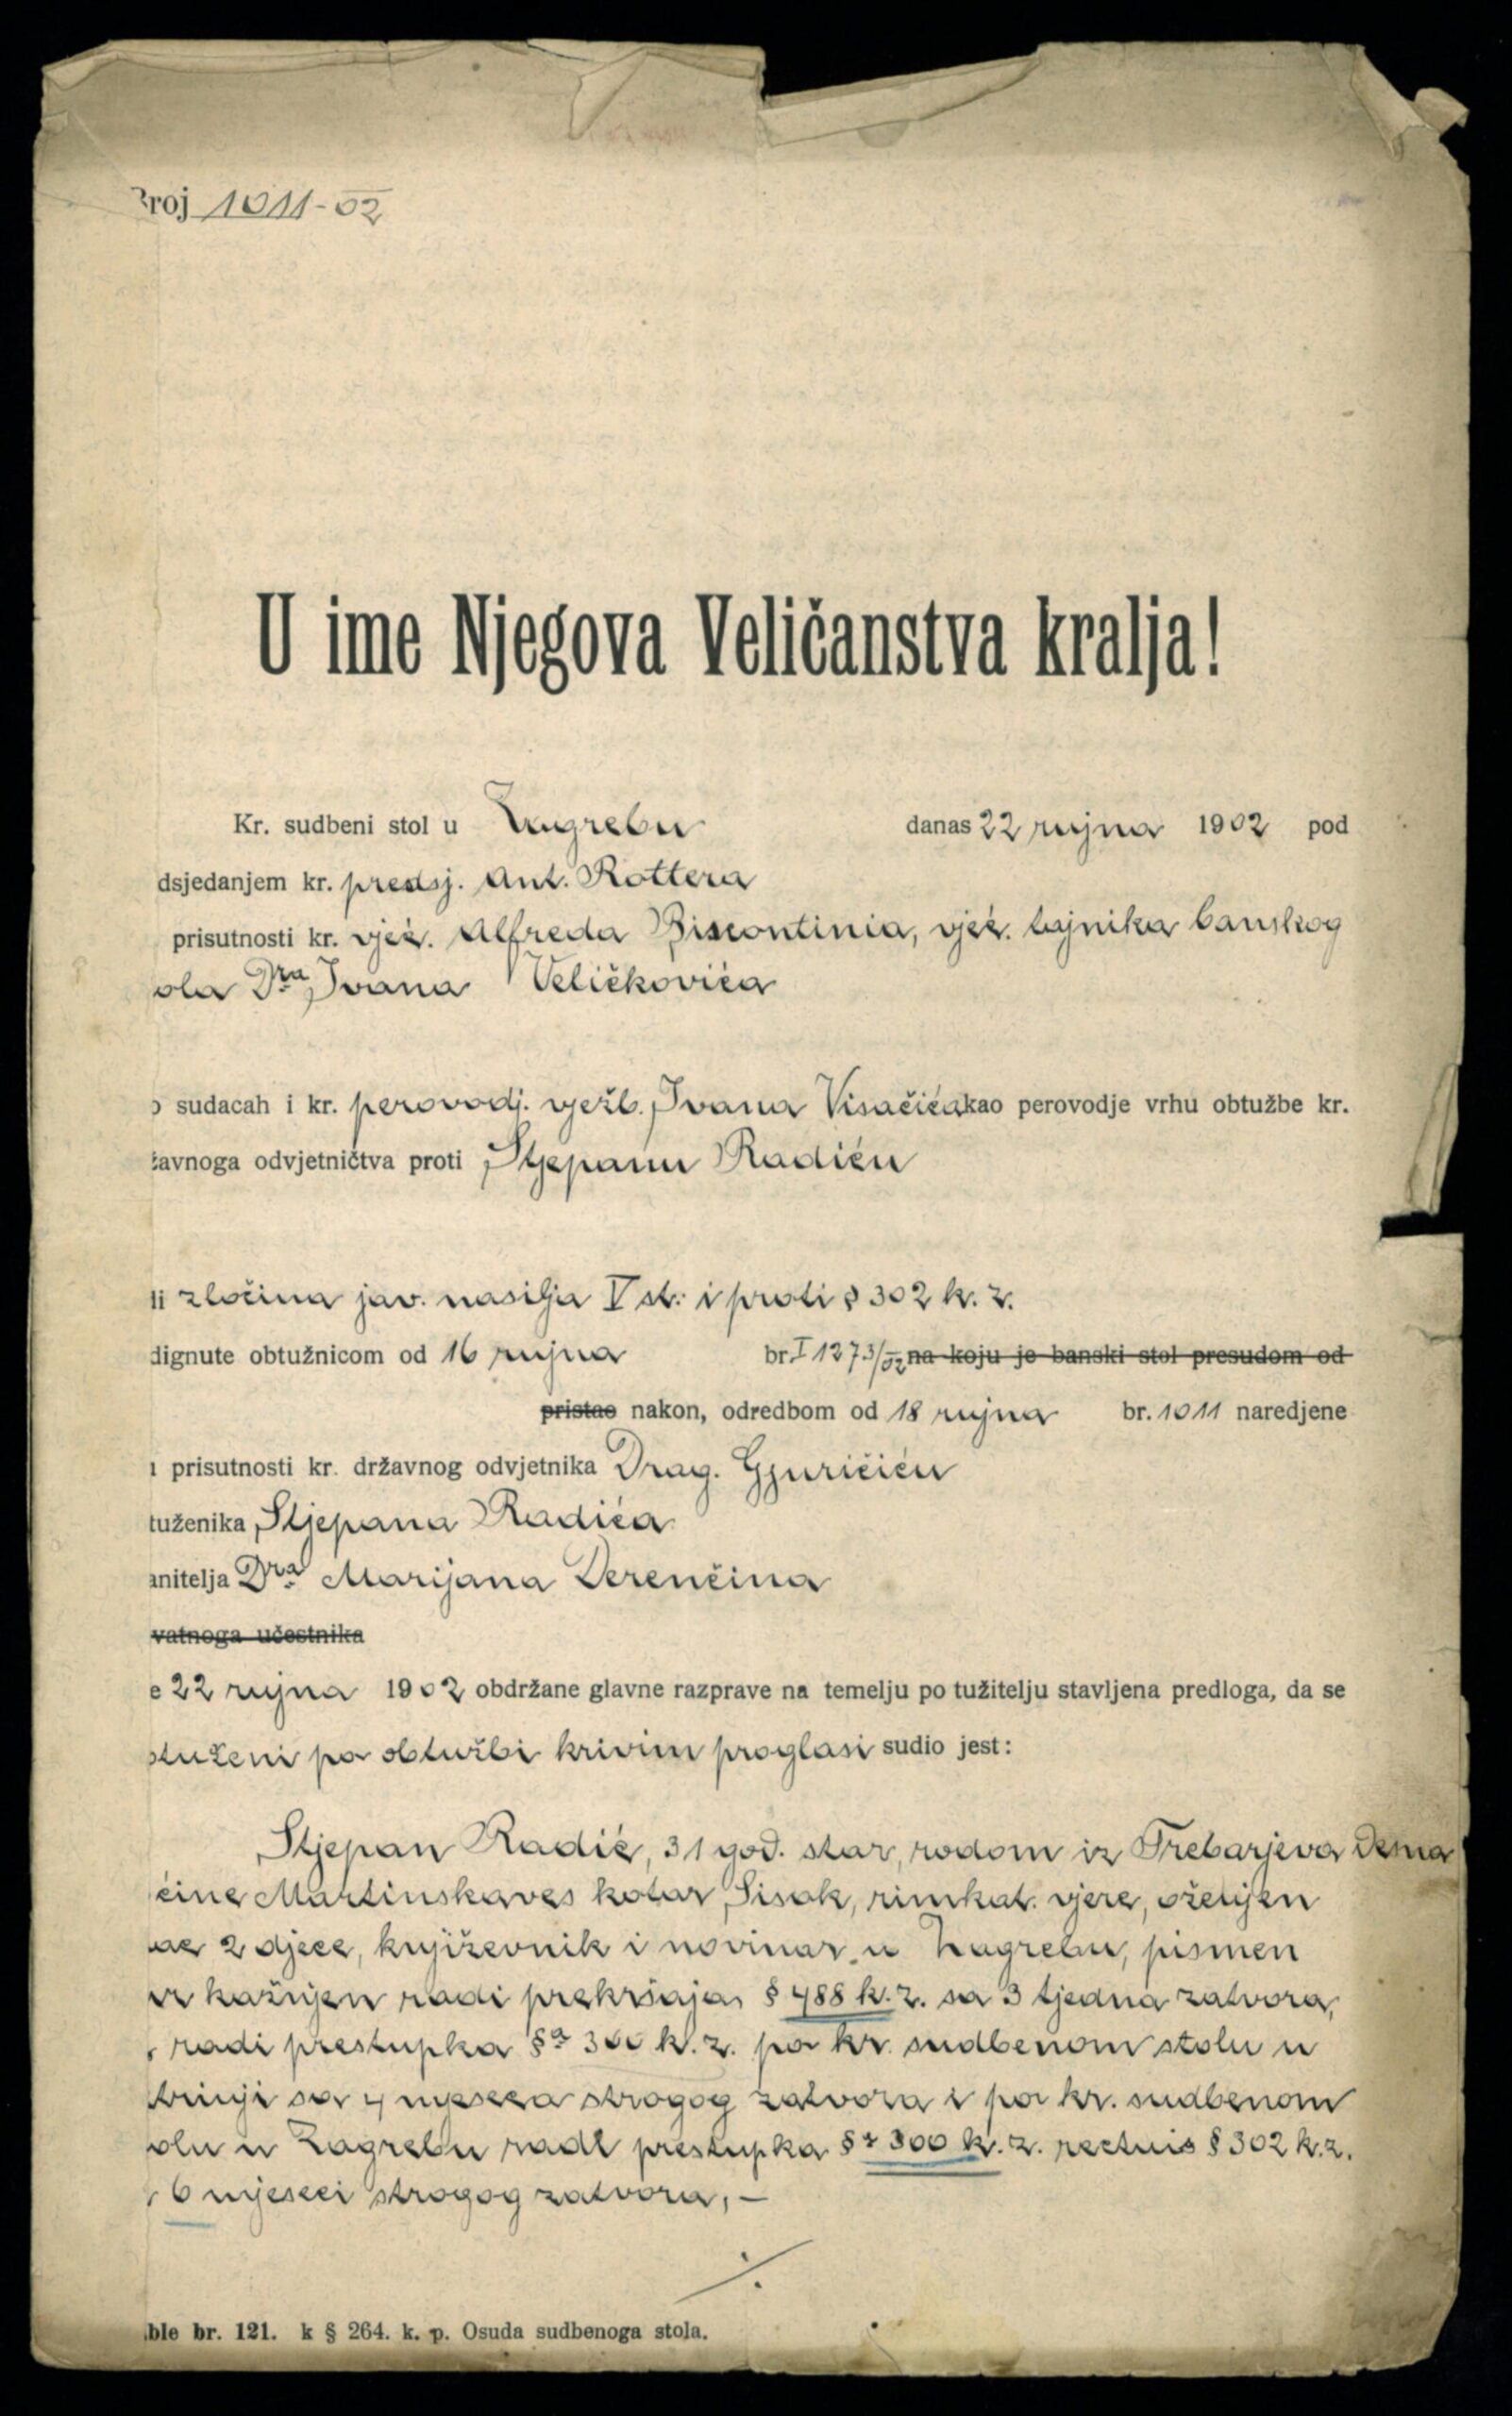 Broj 1011-02
U ime Njegova Veličanstva kralja!
Kr. sudbeni stol u Zagrebu danas 22 rujna 1902 pod
dsjedanjem kr. predsj. Ant. Rottera
prisutnosti kr. vjeć. Alfreda Biscontinia, vjeć. tajnika banskog
ola Dra Ivana Veličkovića
o sudacah i kr. perovodj. vježb. Ivana Visačića kao perovodje vrhu obtužbe kr.
žavnoga odvjetničtva proti Stjepanu Radiću
di zločina jav. nasilja V st. i proti § 302 k. z.
dignute obtužnicom od 16 rujna br. I 1273/02 na koju je banski stol presudom od
pristao nakon, odredbom od 18 rujna br. 1011 naredjene
u prisutnosti kr. državnog odvjetnika Drag. Gjuričiću
tuženika Stjepana Radića
anitelja Dra Marijana Derenčina
vatnoga učestnika
e 22 rujna 1902 obdržane glavne razprave na temelju po tužitelju stavljena predloga, da se
btuženi po obtužbi krivim proglasi sudio jest:
Stjepan Radić, 31 god. star, rodom iz Trebarjeva Desna
ćine Martinskaves kotar Sisak, rimkat. vjere, oženjen
ac 2 djece, književnik i novinar u Zagrebu, pismen
kažnjen radi prekršaja § 488 k. z. sa 3 tjedna zatvora,
radi prestupka §a 300 k. z. po kr. sudbenom stolu u
trinji sa 4 mjeseca strogog zatvora i po kr. sudbenom
olu u Zagrebu radi prestupka §a 300 k. z. rectius § 302 k. z.
6 mjeseci strogog zatvora, —
./.
ble br. 121. k § 264. k. p. Osuda sudbenoga stola.